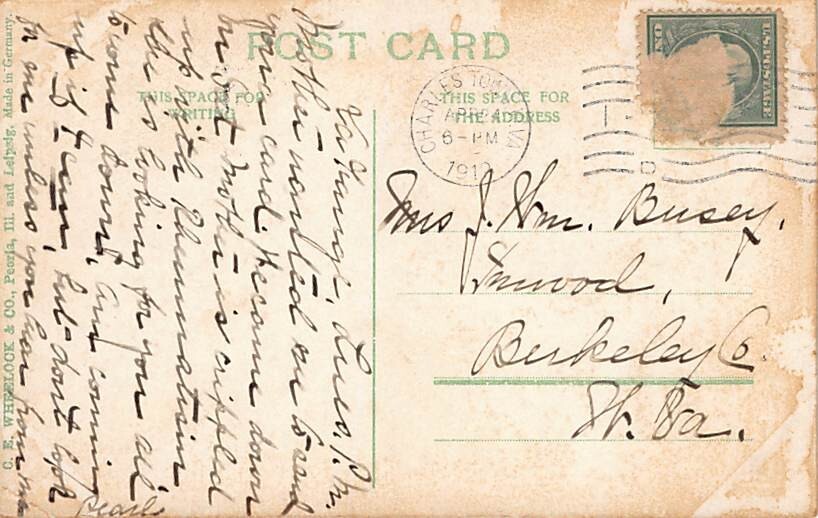 POST CARD
THIS SPACE FOR
WRITING
THIS SPACE FOR
THE ADDRESS
CHARLES TOWN W VA
APR 24
6-PM
1912
Tues. P.M.
Mother wanted me to send
you a card. He came down
but Mother is crippled
up with Rheumatism
she is looking for you all
to come down. Am coming
up if I can, but don't look
for me unless you hear from me
Pearl
Mrs J. Wm. Busey,
Inwood,
Berkeley Co.
W. Va.
C. E. WHEELOCK & CO., Peoria, Ill. and Leipzig, Made in Germany.